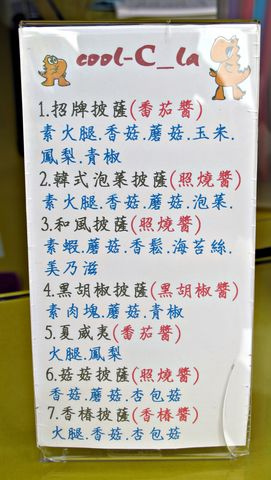 cool-C_la
1.招牌披薩(番茄醬)
素火腿.香菇.蘑菇.玉米.
鳳梨.青椒
2.韓式泡菜披薩(照燒醬)
素火腿.香菇.蘑菇.泡菜.
3.和風披薩(照燒醬)
素蝦.蘑菇.香鬆.海苔絲.
美乃滋
4.黑胡椒披薩(黑胡椒醬)
素肉塊.蘑菇.青椒
5.夏威夷(番茄醬)
火腿.鳳梨
6.菇菇披薩(照燒醬)
香菇.蘑菇.杏包菇
7.香椿披薩(香椿醬)
火腿.香菇.杏包菇